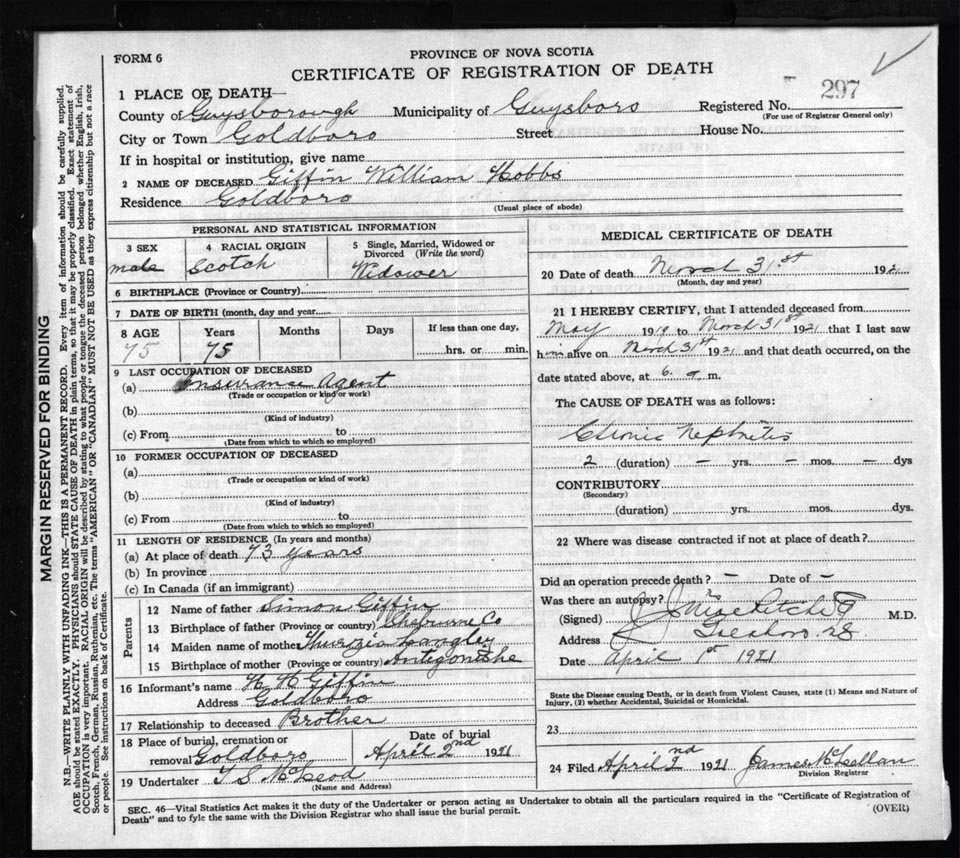 FORM 6
PROVINCE OF NOVA SCOTIA
CERTIFICATE OF REGISTRATION OF DEATH
1 PLACE OF DEATH—
297
County of Guysborough Municipality of Guysboro Registered No.
(For use of Registrar General only)
City or Town Goldboro Street House No.
If in hospital or institution, give name
2 NAME OF DECEASED Giffin William Hobbs
Residence Goldboro
(Usual place of abode)
PERSONAL AND STATISTICAL INFORMATION
3 SEX 4 RACIAL ORIGIN 5 Single, Married, Widowed or Divorced (Write the word)
male Scotch Widower
6 BIRTHPLACE (Province or Country)
7 DATE OF BIRTH (month, day and year)
8 AGE Years Months Days If less than one day,
75 75 hrs. or min.
9 LAST OCCUPATION OF DECEASED
(a) Insurance Agent
(Trade or occupation or kind or work)
(b)
(Kind of industry)
(c) From to
(Date from which to which so employed)
10 FORMER OCCUPATION OF DECEASED
(a)
(Trade or occupation or kind of work)
(b)
(Kind of industry)
(c) From to
(Date from which to which so employed)
11 LENGTH OF RESIDENCE (In years and months)
(a) At place of death 73 years
(b) In province
(c) In Canada (if an immigrant)
Parents
12 Name of father Simon Giffin
13 Birthplace of father (Province or country) Co
14 Maiden name of mother Langley
15 Birthplace of mother (Province or country) Antigonishe
16 Informant's name H H Giffin
Address Goldboro
17 Relationship to deceased Brother
18 Place of burial, cremation or Date of burial
removal Goldboro April 2nd 1921
19 Undertaker T S McLeod
(Name and Address)
MEDICAL CERTIFICATE OF DEATH
20 Date of death March 31st 1921
(Month, day and year)
21 I HEREBY CERTIFY, that I attended deceased from
May 1919 to March 31st 1921 that I last saw
him alive on March 31st 1921 and that death occurred, on the
date stated above, at 6 a.m.
The CAUSE OF DEATH was as follows:
Chronic Nephritis
2 (duration) — yrs. — mos. — dys
CONTRIBUTORY
(Secondary)
(duration) yrs. mos. dys.
22 Where was disease contracted if not at place of death?
Did an operation precede death? — Date of —
Was there an autopsy? no
(Signed) M.D.
Address
Date April 1st 1921
State the Disease causing Death, or in death from Violent Causes, state (1) Means and Nature of
Injury, (2) whether Accidental, Suicidal or Homicidal.
23
24 Filed April 2nd 1921 James McLellan
Division Registrar
SEC. 46—Vital Statistics Act makes it the duty of the Undertaker or person acting as Undertaker to obtain all the particulars required in the "Certificate of Registration of
Death" and to fyle the same with the Division Registrar who shall issue the burial permit.
(OVER)
MARGIN RESERVED FOR BINDING
N.B.—WRITE PLAINLY WITH UNFADING INK—THIS IS A PERMANENT RECORD. Every item of information should be carefully supplied.
AGE should be stated EXACTLY. PHYSICIANS should STATE CAUSE OF DEATH in plain terms, so that it may be properly classified. Exact statement of
OCCUPATION is very important. RACIAL ORIGIN will be described by stating to what people or tongue the deceased person belonged whether English, Irish,
Scotch, French, German, Russian, Ruthenian, etc. The terms "AMERICAN" OR "CANADIAN" MUST NOT BE USED as they express citizenship but not a race
or people. See instructions on back of Certificate.